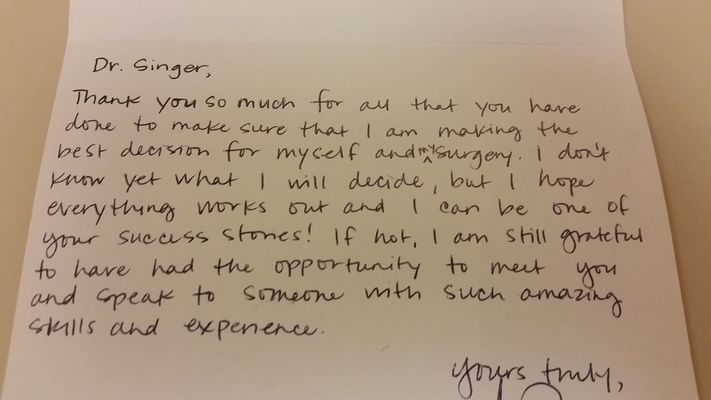 Dr. Singer,
Thank you so much for all that you have
done to make sure that I am making the
best decision for myself and my surgery. I don't
know yet what I will decide, but I hope
everything works out and I can be one of
your success stories! If not, I am still grateful
to have had the opportunity to meet you
and speak to someone with such amazing
skills and experience.
Yours truly,